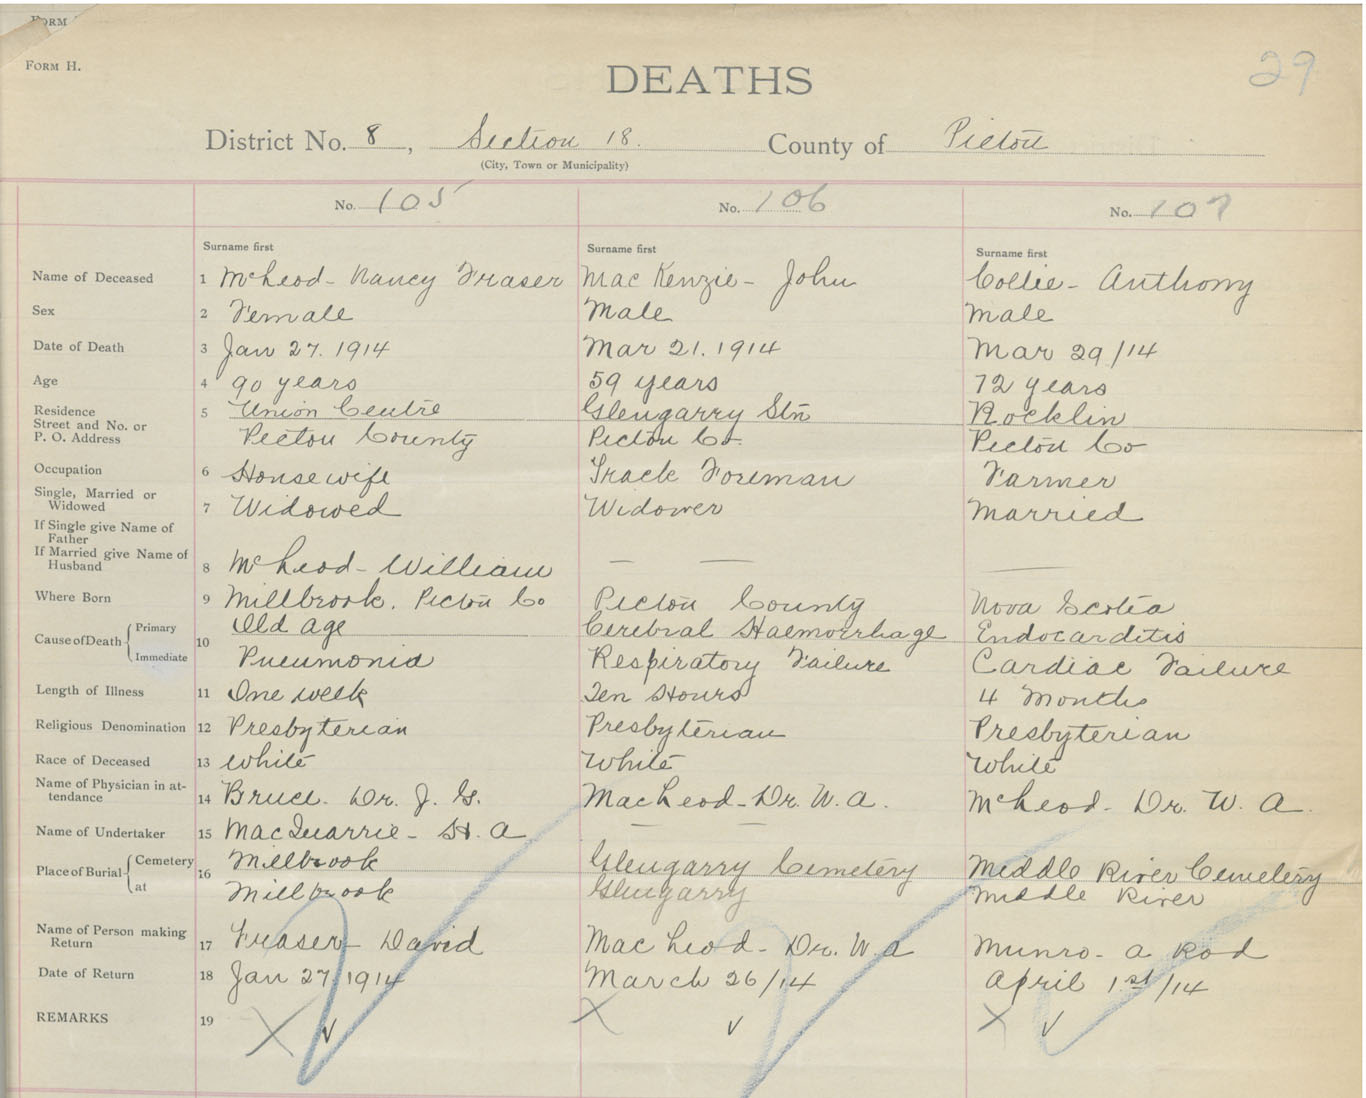 FORM
FORM H.
29
DEATHS
District No. 8, Section 18. County of Pictou
(City, Town or Municipality)
No. 105 No. 106 No. 107
Surname first Surname first Surname first
Name of Deceased 1 McLeod - Nancy Fraser MacKenzie - John Collie - Anthony
Sex 2 Female Male Male
Date of Death 3 Jan 27. 1914 Mar 21. 1914 Mar 29/14
Age 4 90 years 59 years 72 years
Residence 5 Union Centre Glengarry Stn Rocklin
Street and No. or
P. O. Address Pictou County Pictou Co. Pictou Co
Occupation 6 Housewife Track Foreman Farmer
Single, Married or
Widowed 7 Widowed Widower Married
If Single give Name of
Father
If Married give Name of
Husband 8 McLeod - William — — —
Where Born 9 Millbrook. Pictou Co Pictou County Nova Scotia
Cause of Death Primary 10 Old age Cerebral Haemorrhage Endocarditis
Immediate Pneumonia Respiratory Failure Cardiac Failure
Length of Illness 11 One week Ten Hours 4 Months
Religious Denomination 12 Presbyterian Presbyterian Presbyterian
Race of Deceased 13 White White White
Name of Physician in at-
tendance 14 Bruce - Dr. J. G. MacLeod - Dr. W. A. McLeod - Dr. W. A.
Name of Undertaker 15 MacQuarrie - H. A — —
Place of Burial Cemetery 16 Millbrook Glengarry Cemetery Middle River Cemetery
at Millbrook Glengarry Middle River
Name of Person making
Return 17 Fraser - David MacLeod - Dr. W. A Munro - A Rod
Date of Return 18 Jan 27, 1914 March 26/14 April 1st/14
REMARKS 19 X ✓ X ✓ X ✓